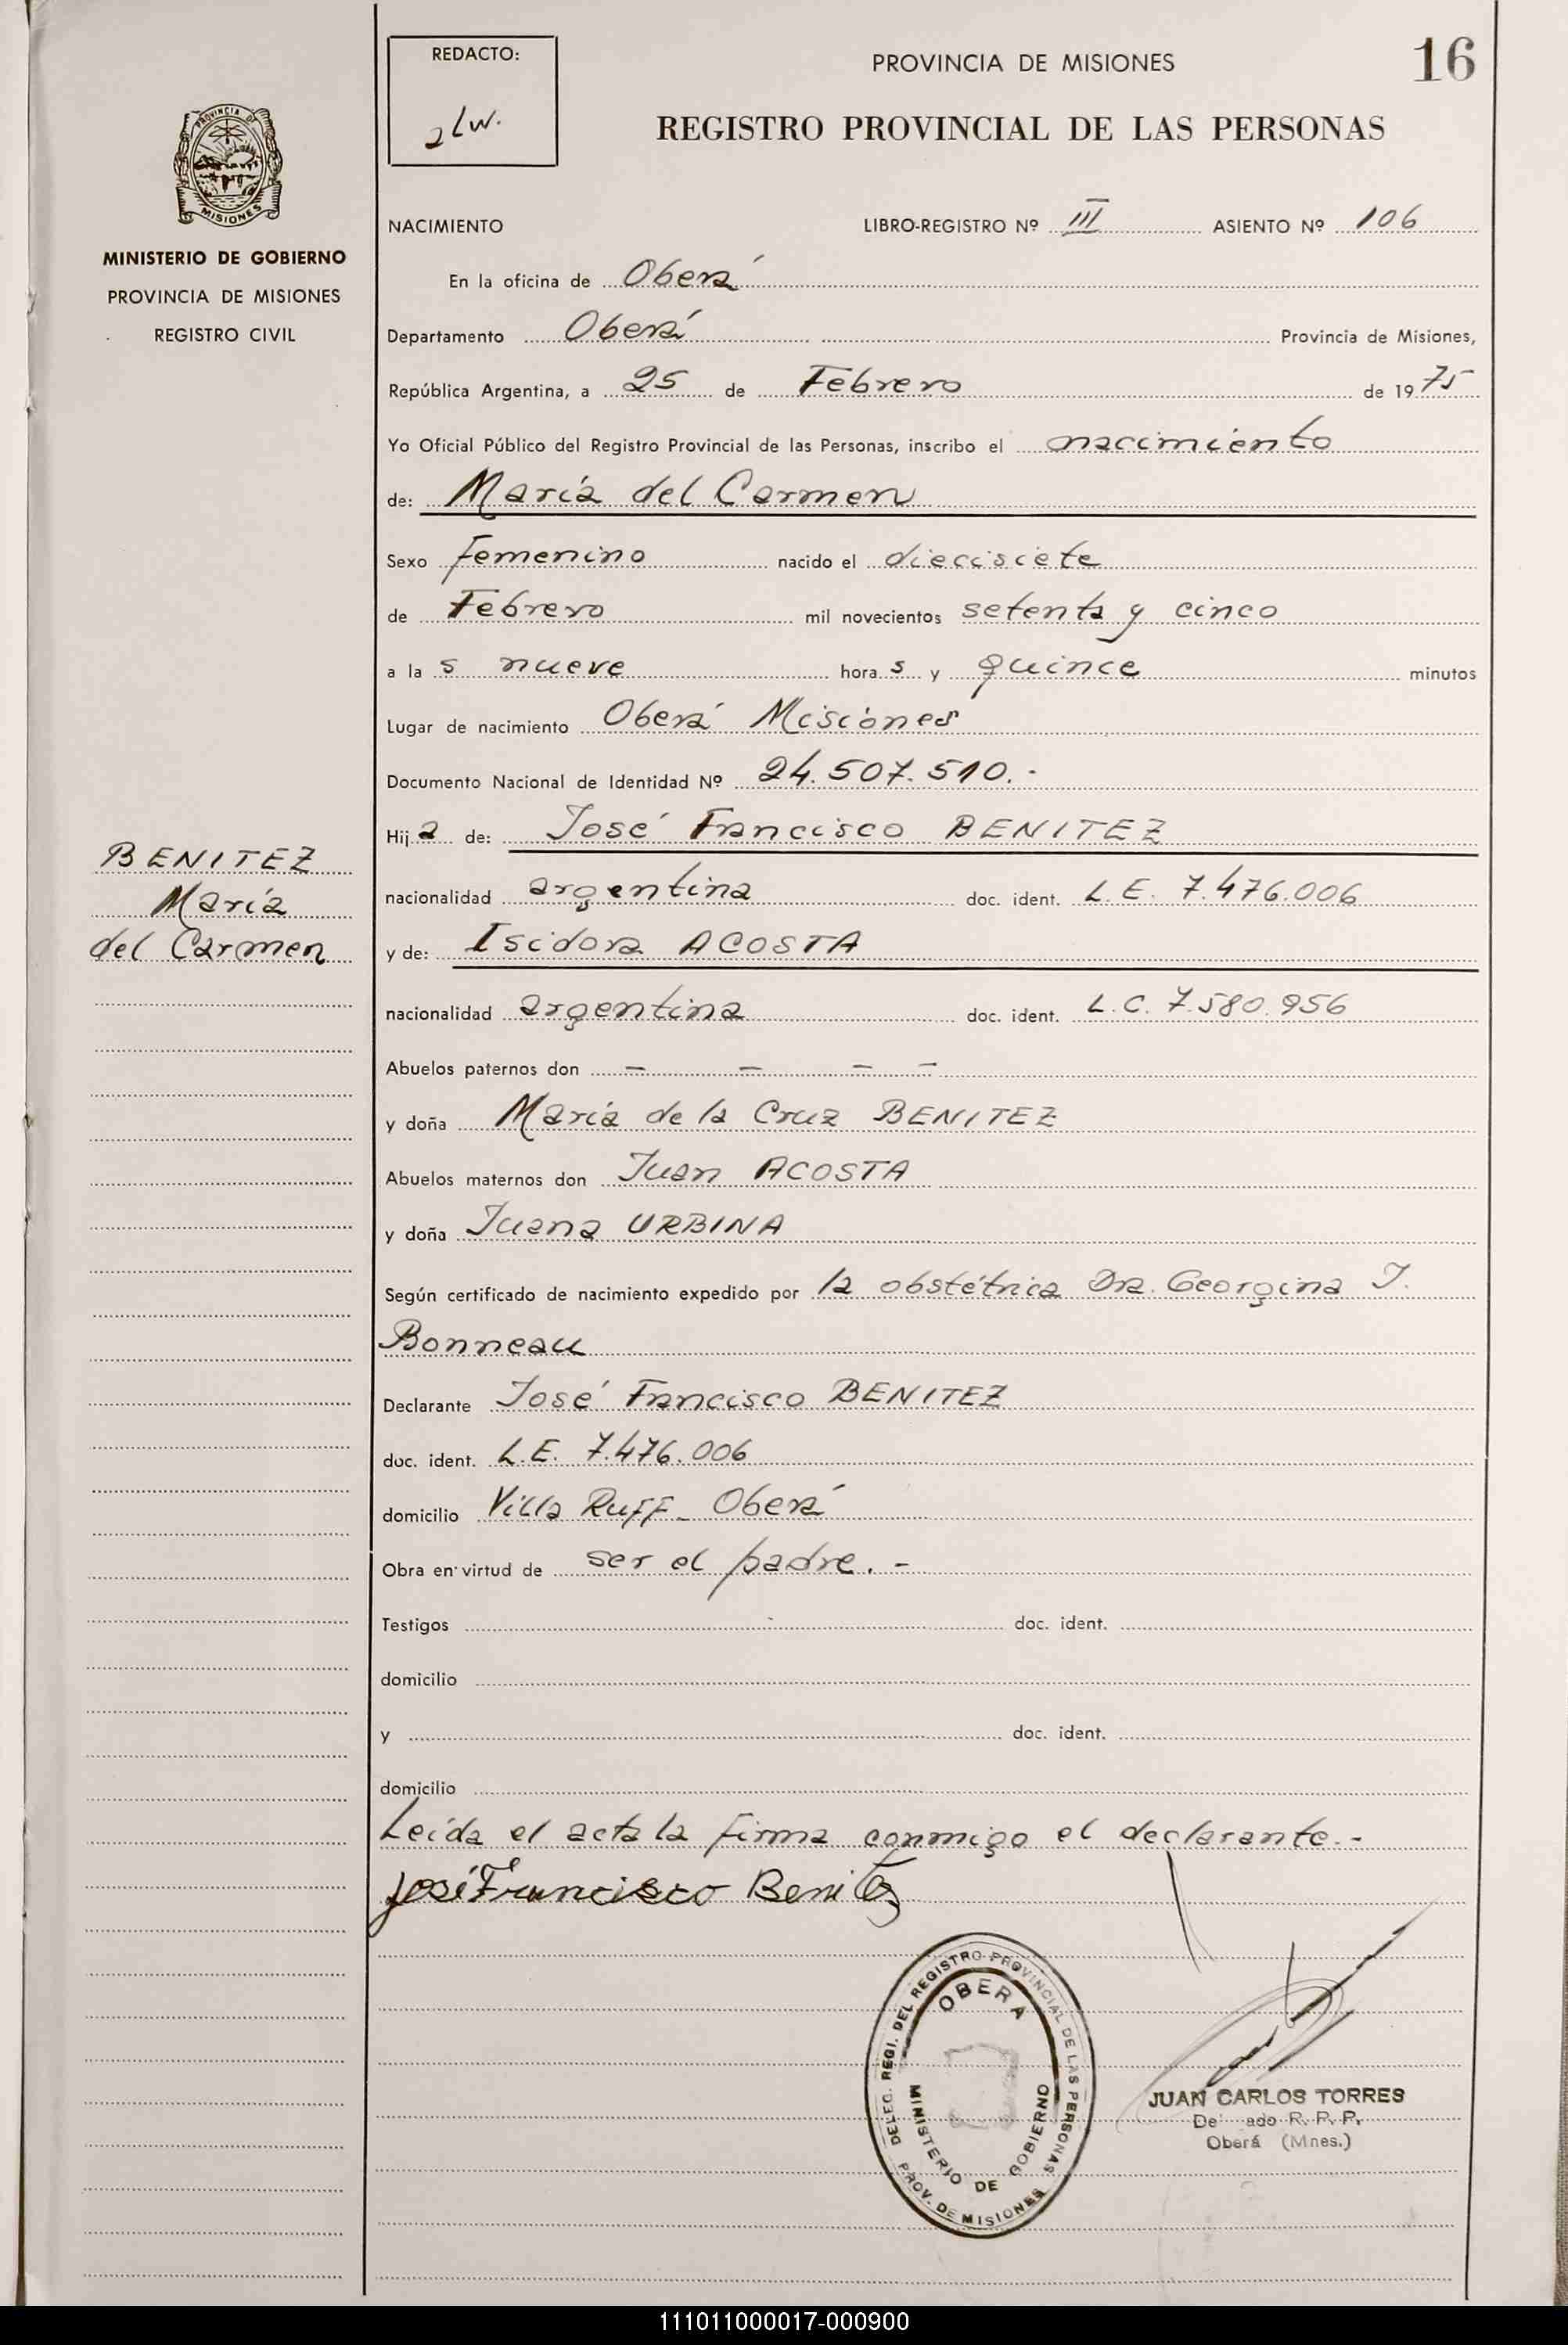 REDACTO:
PROVINCIA DE MISIONES
16
REGISTRO PROVINCIAL DE LAS PERSONAS
PROVINCIA DE
MISIONES
MINISTERIO DE GOBIERNO
PROVINCIA DE MISIONES
REGISTRO CIVIL
NACIMIENTO LIBRO-REGISTRO Nº III ASIENTO Nº 106
En la oficina de Oberá
Departamento Oberá Provincia de Misiones,
República Argentina, a 25 de Febrero de 1975
Yo Oficial Público del Registro Provincial de las Personas, inscribo el nacimiento
de: María del Carmen
Sexo femenino nacido el diecisiete
de Febrero mil novecientos setenta y cinco
a las nueve horas y quince minutos
Lugar de nacimiento Oberá Misiones
Documento Nacional de Identidad Nº 24.507.510.-
Hija de: José Francisco BENITEZ
BENITEZ
María
del Carmen
nacionalidad argentina doc. ident. L.E. 7.476.006
y de: Isidora ACOSTA
nacionalidad argentina doc. ident. L.C. 7.580.956
Abuelos paternos don — — — —
y doña María de la Cruz BENITEZ
Abuelos maternos don Juan ACOSTA
y doña Juana URBINA
Según certificado de nacimiento expedido por la obstétrica Dra. Georgina J.
Bonneau
Declarante José Francisco BENITEZ
doc. ident. L.E. 7.476.006
domicilio Villa Ruff - Oberá
Obra en virtud de ser el padre.-
Testigos doc. ident.
domicilio
y doc. ident.
domicilio
Leída el acta la firma conmigo el declarante.-
José Francisco Benitez
DELEG. REGI. DEL REGISTRO PROVINCIAL DE LAS PERSONAS
OBERA
MINISTERIO DE GOBIERNO
PROV. DE MISIONES
JUAN CARLOS TORRES
De ado R. P. P.
Oberá (Mnes.)
111011000017-000900